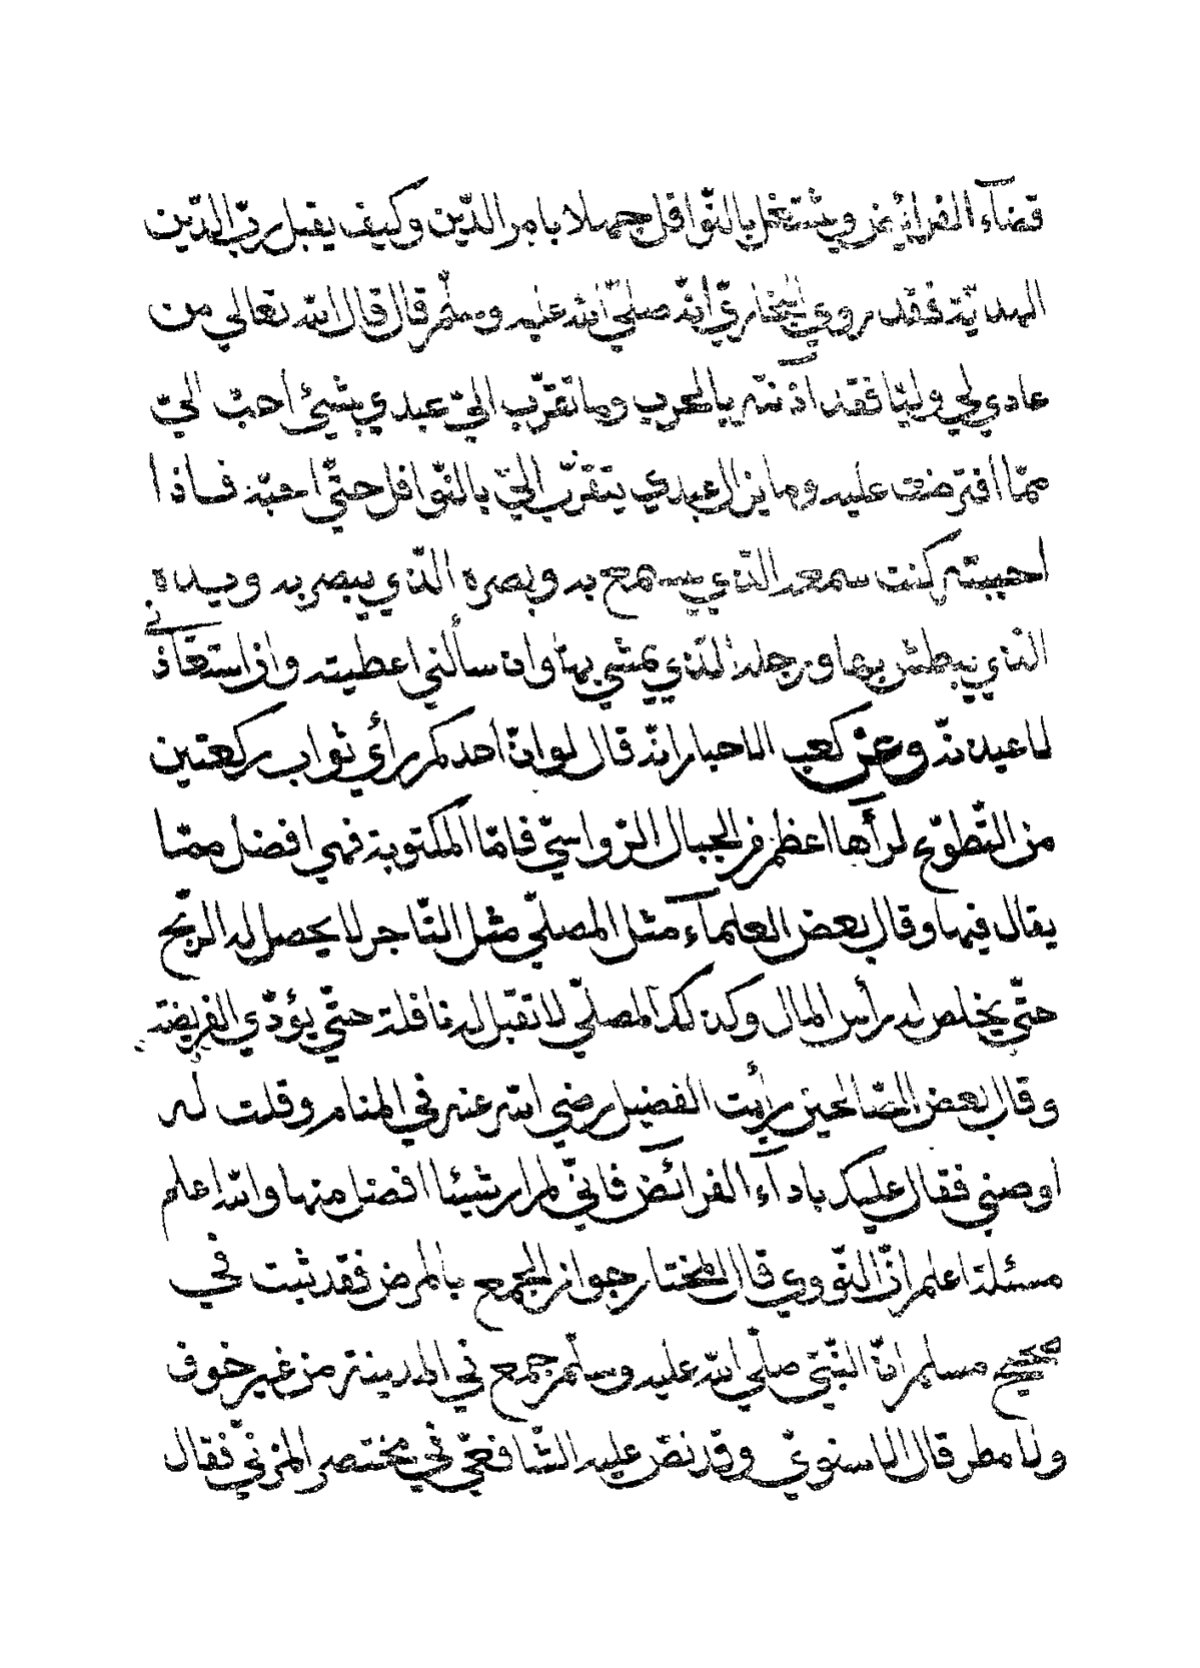 قضآء الفرائض ويشتغل بالنّوافل جهلا بامر الدّين وكيف يقبل ربّ الدّين
الهديّة فقد روي البخاريّ انّه صلّي الله عليه وسلّم قال قال الله تعالي من
عادي لي وليّا فقد آذنته بالحرب وما تقرّب اليّ عبدي بشيئ احبّ اليّ
ممّا افترضت عليه وما يزال عبدي يتقرّب اليّ بالنّوافل حتّي احبّه فاذا
احببته كنت سمعه الّذي يسمع به وبصره الّذي يبصر به ويده
الّذي يبطش بها ورجله الّذي يمشي بها وان سألني اعطيته وان استعاذني
لاعيذنّه وعن كعب الاحبار انّه قال لو انّ احدكم رأي ثواب ركعتين
من التّطوّع لرآها اعظم من الجبال الرّواسي فامّا المكتوبة فهي افضل ممّا
يقال فيها وقال بعض العلمآء مثل المصلّي مثل التّاجر لا يحصل له الرّبح
حتّي يخلص له رأس المال وكذلك المصلّي لا تقبل له نافلة حتّي يؤدّي الفريضة
وقال بعض الصّالحين رأيت الفضيل رضي الله عنه في المنام وقلت له
اوصني فقال عليك بادآء الفرآئض فانّي لم ار شيئا افضل منها والله اعلم
مسئلة اعلم انّ النّووي قال المختار جواز الجمع بالمرض فقد ثبت في
صحيح مسلم انّ النّبيّ صلّي الله عليه وسلّم جمع في المدينة من غير خوف
ولا مطر قال الاسنويّ وقد نصّ عليه الشّافعيّ في مختصر المزنيّ فقال